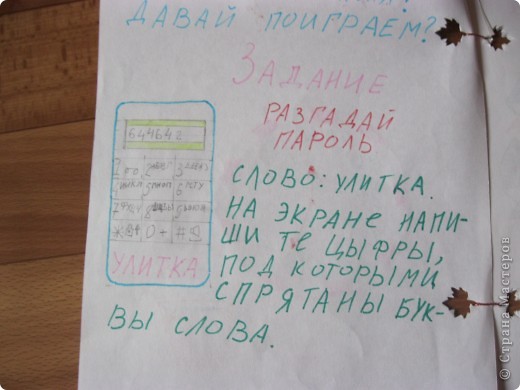 ДАВАЙ ПОИГРАЕМ?
ЗАДАНИЕ
РАЗГАДАЙ
ПАРОЛЬ
СЛОВО: УЛИТКА.
НА ЭКРАНЕ НАПИ-
ШИ ТЕ ЦЫФРЫ,
ПОД КОТОРЫМИ
СПРЯТАНЫ БУК-
ВЫ СЛОВА.
644642
УЛИТКА
© Страна Мастеров